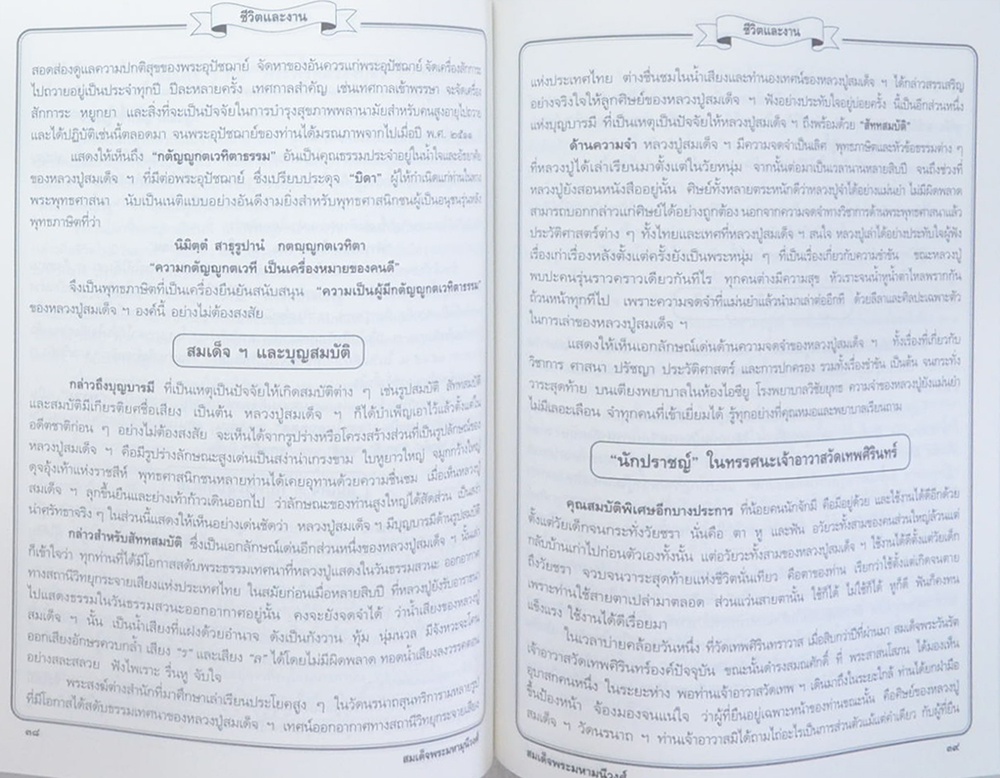 ชีวิตและงาน
สอดส่องดูแลความปกติสุขของพระอุปัชฌาย์ จัดหาของอันควรแก่พระอุปัชฌาย์ จัดเครื่องสักการะ
ไปถวายอยู่เป็นประจำทุกปี ปีละหลายครั้ง เทศกาลสำคัญ เช่นเทศกาลเข้าพรรษา จะจัดเครื่อง
สักการะ หยูกยา และสิ่งที่จะเป็นปัจจัยในการบำรุงสุขภาพพลานามัยสำหรับคนสูงอายุไปถวาย
และได้ปฏิบัติเช่นนี้ตลอดมา จนพระอุปัชฌาย์ของท่านได้มรณภาพจากไปเมื่อปี พ.ศ. ๒๕๑๑
แสดงให้เห็นถึง “กตัญญุกตเวทิตาธรรม” อันเป็นคุณธรรมประจำอยู่ในน้ำใจและอัธยาศัย
ของหลวงปู่สมเด็จ ฯ ที่มีต่อพระอุปัชฌาย์ ซึ่งเปรียบประดุจ “บิดา” ผู้ให้กำเนิดแก่ท่านในทาง
พระพุทธศาสนา นับเป็นเนติแบบอย่างอันดีงามยิ่งสำหรับพุทธศาสนิกชนผู้เป็นอนุชนรุ่นหลัง
พุทธภาษิตที่ว่า
นิมิตฺตํ สาธุรูปานํ กตญฺญูกตเวทิตา
“ความกตัญญูกตเวที เป็นเครื่องหมายของคนดี”
จึงเป็นพุทธภาษิตที่เป็นเครื่องยืนยันสนับสนุน “ความเป็นผู้มีกตัญญุกตเวทิตาธรรม”
ของหลวงปู่สมเด็จ ฯ องค์นี้ อย่างไม่ต้องสงสัย
สมเด็จ ฯ และบุญสมบัติ
กล่าวถึงบุญบารมี ที่เป็นเหตุเป็นปัจจัยให้เกิดสมบัติต่าง ๆ เช่นรูปสมบัติ สัททสมบัติ
และสมบัติมีเกียรติยศชื่อเสียง เป็นต้น หลวงปู่สมเด็จ ฯ ก็ได้บำเพ็ญเอาไว้แล้วตั้งแต่ใน
อดีตชาติก่อน ๆ อย่างไม่ต้องสงสัย จะเห็นได้จากรูปร่างหรือโครงสร้างส่วนที่เป็นรูปลักษณ์ของ
หลวงปู่สมเด็จ ฯ คือมีรูปร่างลักษณะสูงเด่นเป็นสง่าน่าเกรงขาม ใบหูยาวใหญ่ จมูกกว้างใหญ่
ดุจอุ้งเท้าแห่งราชสีห์ พุทธศาสนิกชนหลายท่านได้เคยอุทานด้วยความชื่นชม เมื่อเห็นหลวงปู่
สมเด็จ ฯ ลุกขึ้นยืนและย่างเท้าก้าวเดินออกไป ว่าลักษณะของท่านสูงใหญ่ได้สัดส่วน เป็นสง่า
น่าศรัทธาจริง ๆ ในส่วนนี้แสดงให้เห็นอย่างเด่นชัดว่า หลวงปู่สมเด็จ ฯ มีบุญบารมีด้านรูปสมบัติ
กล่าวสำหรับสัททสมบัติ ซึ่งเป็นเอกลักษณ์เด่นอีกส่วนหนึ่งของหลวงปู่สมเด็จ ฯ นั้นเล่า
ก็เข้าใจว่า ทุกท่านที่ได้มีโอกาสสดับพระธรรมเทศนาที่หลวงปู่แสดงในวันธรรมสวนะ ออกอากาศ
ทางสถานีวิทยุกระจายเสียงแห่งประเทศไทย ในสมัยก่อนเมื่อหลายสิบปี ที่หลวงปู่ยังรับอาราธนา
ไปแสดงธรรมในวันธรรมสวนะออกอากาศอยู่นั้น คงจะยังจดจำได้ ว่าน้ำเสียงของหลวงปู่
สมเด็จ ฯ นั้น เป็นน้ำเสียงที่แฝงด้วยอำนาจ ดังเป็นกังวาน ทุ้ม นุ่มนวล มีจังหวะจะโคน
ออกเสียงอักษรควบกล้ำ เสียง “ร” และเสียง “ล” ได้โดยไม่มีผิดพลาด ทอดน้ำเสียงลงวรรคตอน
อย่างสละสลวย ฟังไพเราะ รื่นหู จับใจ
พระสงฆ์ต่างสำนักที่มาศึกษาเล่าเรียนประโยคสูง ๆ ในวัดนรนาถสุนทริการามหลายรูป
ที่มีโอกาสได้สดับธรรมเทศนาของหลวงปู่สมเด็จ ฯ เทศน์ออกอากาศทางสถานีวิทยุกระจายเสียง
๓๘
สมเด็จพระมหามุนีวงศ์
ชีวิตและงาน
แห่งประเทศไทย ต่างชื่นชมในน้ำเสียงและทำนองเทศน์ของหลวงปู่สมเด็จ ฯ ได้กล่าวสรรเสริญ
อย่างจริงใจให้ลูกศิษย์ของหลวงปู่สมเด็จ ฯ ฟังอย่างประทับใจอยู่บ่อยครั้ง นี้เป็นอีกส่วนหนึ่ง
แห่งบุญบารมี ที่เป็นเหตุเป็นปัจจัยให้หลวงปู่สมเด็จ ฯ ถึงพร้อมด้วย “สัททสมบัติ”
ด้านความจำ หลวงปู่สมเด็จ ฯ มีความจำเป็นเลิศ พุทธภาษิตและหัวข้อธรรมต่าง ๆ
ที่หลวงปู่ได้เล่าเรียนมาตั้งแต่ในวัยหนุ่ม จากนั้นต่อมาเป็นเวลานานหลายสิบปี จนถึงช่วงที่
หลวงปู่ยังสอนหนังสืออยู่นั้น ศิษย์ทั้งหลายตระหนักดีว่าหลวงปู่จำได้อย่างแม่นยำ ไม่มีผิดพลาด
สามารถบอกกล่าวแก่ศิษย์ได้อย่างถูกต้อง นอกจากความจดจำทางวิชาการด้านพระพุทธศาสนาแล้ว
ประวัติศาสตร์ต่าง ๆ ทั้งไทยและเทศที่หลวงปู่สมเด็จ ฯ สนใจ หลวงปู่เล่าได้อย่างประทับใจผู้ฟัง
เรื่องเก่าเรื่องหลังตั้งแต่ครั้งยังเป็นพระหนุ่ม ๆ ที่เป็นเรื่องเกี่ยวกับความขำขัน ขณะหลวงปู่
พบปะคนรุ่นราวคราวเดียวกันทีไร ทุกคนต่างมีความสุข หัวเราะจนน้ำหูน้ำตาไหลพรากกัน
ถ้วนหน้าทุกทีไป เพราะความจดจำที่แม่นยำแล้วนำมาเล่าต่ออีกที ด้วยลีลาและศิลปะเฉพาะตัว
ในการเล่าของหลวงปู่สมเด็จ ฯ
แสดงให้เห็นเอกลักษณ์เด่นด้านความจำของหลวงปู่สมเด็จ ฯ ทั้งเรื่องที่เกี่ยวกับ
วิชาการ ศาสนา ปรัชญา ประวัติศาสตร์ และการปกครอง รวมทั้งเรื่องขำขัน เป็นต้น จนกระทั่ง
วาระสุดท้าย บนเตียงพยาบาลในห้องไอซียู โรงพยาบาลวิชัยยุทธ ความจำของหลวงปู่ยังแม่นยำ
ไม่มีเลอะเลือน จำทุกคนที่เข้าเยี่ยมได้ รู้ทุกอย่างที่คุณหมอและพยาบาลเรียนถาม
“นักปราชญ์” ในทรรศนะเจ้าอาวาสวัดเทพศิรินทร์
คุณสมบัติพิเศษอีกบางประการ ที่น้อยคนนักจักมี คือมีอยู่ด้วย และใช้งานได้ดีอีกด้วย
ตั้งแต่วัยเด็กจนกระทั่งวัยชรา นั่นคือ ตา หู และฟัน อวัยวะทั้งสามของคนส่วนใหญ่ล้วนแต่
กลับบ้านเก่าไปก่อนตัวเองทั้งนั้น แต่อวัยวะทั้งสามของหลวงปู่สมเด็จ ฯ ใช้งานได้ดีตั้งแต่วัยเด็ก
ถึงวัยชรา จวบจนวาระสุดท้ายแห่งชีวิตนั่นเทียว คือตาของท่าน เรียกว่าใช้ตั้งแต่เกิดจนตาย
เพราะท่านใช้สายตาเปล่ามาตลอด ส่วนแว่นสายตานั้น ใช้ก็ได้ ไม่ใช้ก็ได้ หูก็ดี ฟันก็คงทน
แข็งแรง ใช้งานได้ดีเรื่อยมา
ในเวลาบ่ายคล้อยวันหนึ่ง ที่วัดเทพศิรินทราวาส เมื่อสิบกว่าปีที่ผ่านมา สมเด็จพระวันรัต
เจ้าอาวาสวัดเทพศิรินทร์องค์ปัจจุบัน ขณะนั้นดำรงสมณศักดิ์ ที่ พระสาสนโสภณ ได้มองเห็น
อุบาสกคนหนึ่ง ในระยะห่าง พอท่านเจ้าอาวาสวัดเทพ ฯ เดินมาถึงในระยะใกล้ ท่านได้ยกฝ่ามือ
ขึ้นป้องหน้า จ้องมองจนแน่ใจ ว่าผู้ที่ยืนอยู่เฉพาะหน้าของท่านขณะนั้น คือศิษย์ของหลวงปู่
สมเด็จ ฯ วัดนรนาถ ฯ ท่านเจ้าอาวาสมิได้ถามไถ่อะไรเป็นการส่วนตัวแม้แต่คำเดียว กับผู้ที่ยืน
สมเด็จพระมหามุนีวงศ์
๓๙